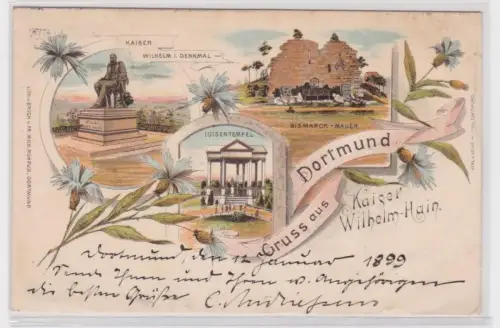 KAISER
WILHELM I. DENKMAL
LUISENTEMPEL
BISMARCK-MAUER
Gruss aus Dortmund
Kaiser
Wilhelm-Hain.
Dortmund, den 12 Januar 1899
Sende Ihnen und Ihren w. Angehörigen
die besten Grüße